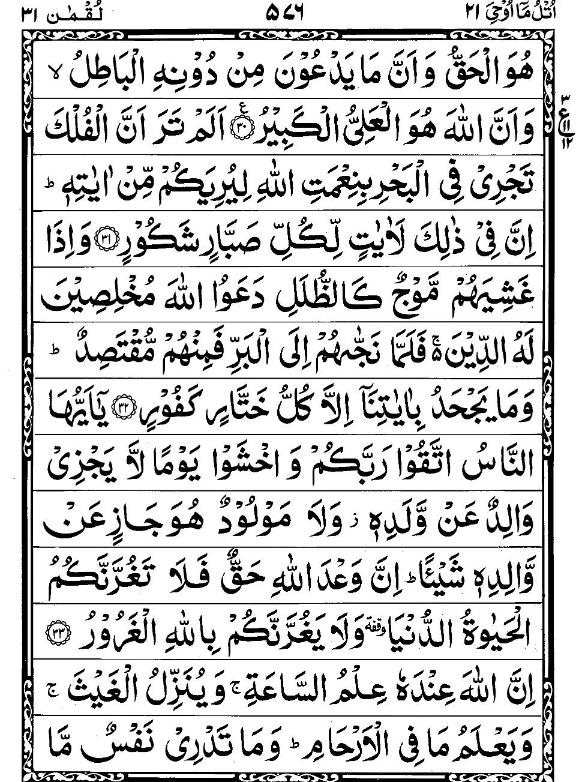 اُتْلُ مَا اُوْحِیَ ۲۱ ۵۷۶ لُقْمٰن ۳۱
هُوَ الْحَقُّ وَ اَنَّ مَا یَدْعُوْنَ مِنْ دُوْنِهِ الْبَاطِلُ ۙ
وَ اَنَّ اللّٰهَ هُوَ الْعَلِیُّ الْكَبِیْرُ ۧ ﴿۳۰﴾ اَلَمْ تَرَ اَنَّ الْفُلْكَ
تَجْرِیْ فِی الْبَحْرِ بِنِعْمَتِ اللّٰهِ لِیُرِیَكُمْ مِّنْ اٰیٰتِهٖ ؕ
اِنَّ فِیْ ذٰلِكَ لَاٰیٰتٍ لِّكُلِّ صَبَّارٍ شَكُوْرٍ ﴿۳۱﴾ وَ اِذَا
غَشِیَهُمْ مَّوْجٌ كَالظُّلَلِ دَعَوُا اللّٰهَ مُخْلِصِیْنَ
لَهُ الدِّیْنَ ۚ۬ فَلَمَّا نَجّٰىهُمْ اِلَی الْبَرِّ فَمِنْهُمْ مُّقْتَصِدٌ ؕ
وَ مَا یَجْحَدُ بِاٰیٰتِنَاۤ اِلَّا كُلُّ خَتَّارٍ كَفُوْرٍ ﴿۳۲﴾ یٰۤاَیُّهَا
النَّاسُ اتَّقُوْا رَبَّكُمْ وَ اخْشَوْا یَوْمًا لَّا یَجْزِیْ
وَالِدٌ عَنْ وَّلَدِهٖ ؗ وَ لَا مَوْلُوْدٌ هُوَ جَازٍ عَنْ
وَّالِدِهٖ شَیْـًٔا ؕ اِنَّ وَعْدَ اللّٰهِ حَقٌّ فَلَا تَغُرَّنَّكُمُ
الْحَیٰوةُ الدُّنْیَا ۥ وقفة وَ لَا یَغُرَّنَّكُمْ بِاللّٰهِ الْغَرُوْرُ ﴿۳۳﴾
اِنَّ اللّٰهَ عِنْدَهٗ عِلْمُ السَّاعَةِ ۚ وَ یُنَزِّلُ الْغَیْثَ ۚ
وَ یَعْلَمُ مَا فِی الْاَرْحَامِ ؕ وَ مَا تَدْرِیْ نَفْسٌ مَّا
۳
ع
۱۱
۱۲